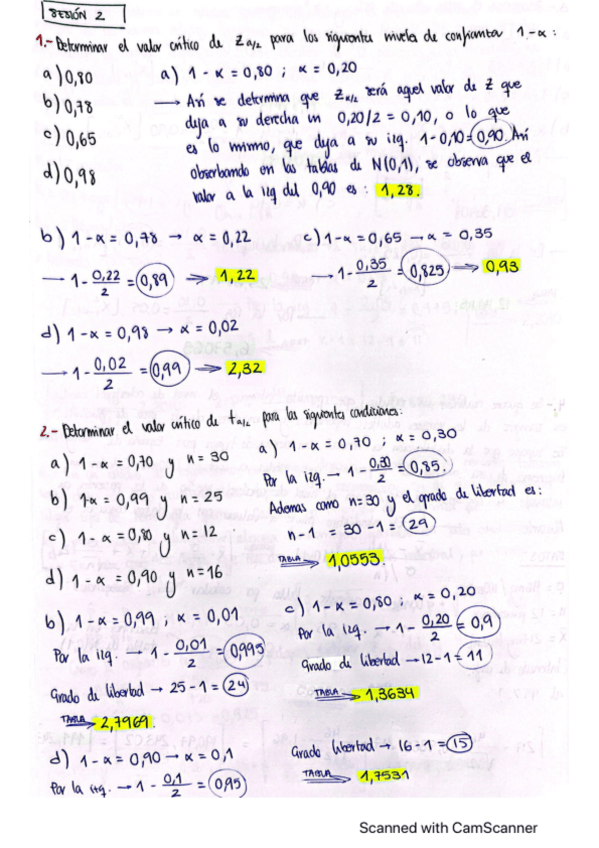 SESIÓN 2
1.- Determinar el valor crítico de Z α/2 para los siguientes niveles de confianza 1-α:
a) 0,80
b) 0,78
c) 0,65
d) 0,98
a) 1-α = 0,80 ; α = 0,20
→ Así se determina que Zα/2 será aquel valor de Z que
deja a su derecha un 0,20/2 = 0,10, o lo que
es lo mismo, que deja a su izq. 1-0,10 = 0,90. Así
observando en las tablas de N(0,1), se observa que el
valor a la izq del 0,90 es: 1,28.
b) 1-α = 0,78 → α = 0,22
→ 1 - 0,22/2 = 0,89 → 1,22
c) 1-α = 0,65 → α = 0,35
→ 1 - 0,35/2 = 0,825 → 0,93
d) 1-α = 0,98 → α = 0,02
→ 1 - 0,02/2 = 0,99 → 2,32
2.- Determinar el valor crítico de t α/2 para las siguientes condiciones:
a) 1-α = 0,70 y n = 30
b) 1-α = 0,99 y n = 25
c) 1-α = 0,80 y n = 12
d) 1-α = 0,90 y n = 16
a) 1-α = 0,70 ; α = 0,30
Por la izq. → 1 - 0,30/2 = 0,85.
Además como n=30 y el grado de libertad es:
n-1 = 30-1 = 29
TABLA → 1,0553.
b) 1-α = 0,99 ; α = 0,01
Por la izq. → 1 - 0,01/2 = 0,995
Grado de libertad → 25-1 = 24
TABLA → 2,7969.
c) 1-α = 0,80 ; α = 0,20
Por la izq. → 1 - 0,20/2 = 0,9
Grado de libertad → 12-1 = 11
TABLA → 1,3634
d) 1-α = 0,90 → α = 0,1
Por la izq. → 1 - 0,1/2 = 0,95
Grado libertad → 16-1 = 15
TABLA → 1,7531
Scanned with CamScanner